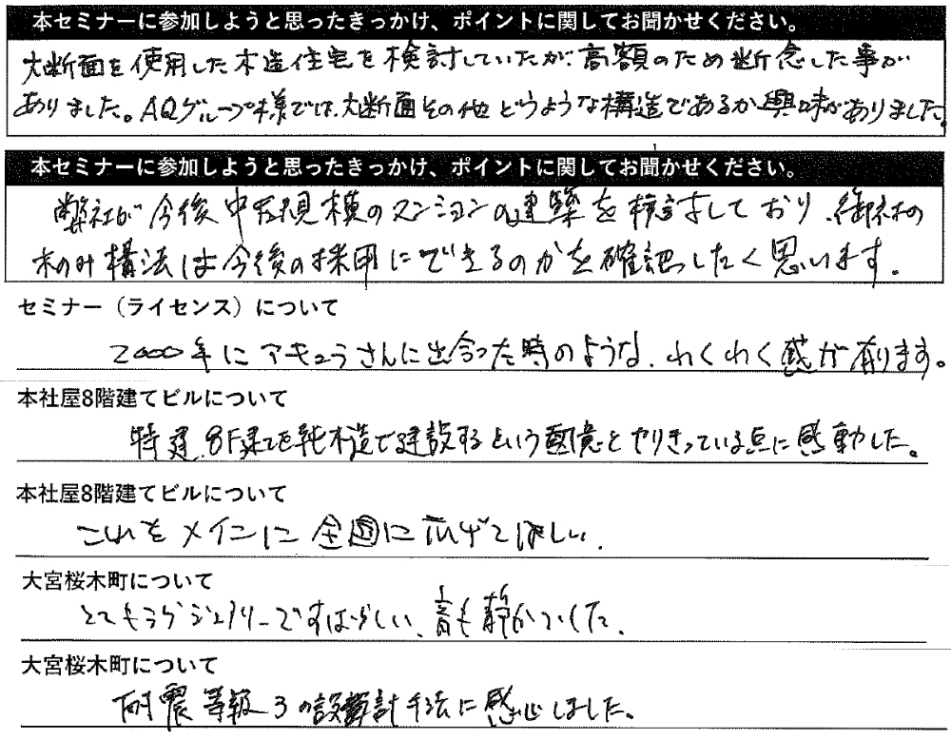 本セミナーに参加しようと思ったきっかけ、ポイントに関してお聞かせください。
大断面を使用した木造住宅を検討していたが、高額のため断念した事が
ありました。AQグループ様では、大断面その他どうような構造であるか興味がありました。
本セミナーに参加しようと思ったきっかけ、ポイントに関してお聞かせください。
弊社が今後中大規模のマンションの建築を検討しており、御社の
木のみ構法は今後の採用にできるのかを確認したく思います。
セミナー（ライセンス）について
2000年にアキュラさんに出合った時のような、わくわく感が有ります。
本社屋8階建てビルについて
特建、8F建てを純木造で建設するという決意とやりきっている点に感動した。
本社屋8階建てビルについて
これをメインに全国に広げてほしい。
大宮桜木町について
とてもラグジュアリーですばらしい、音も静かでした。
大宮桜木町について
耐震等級3の設計手法に感心しました。